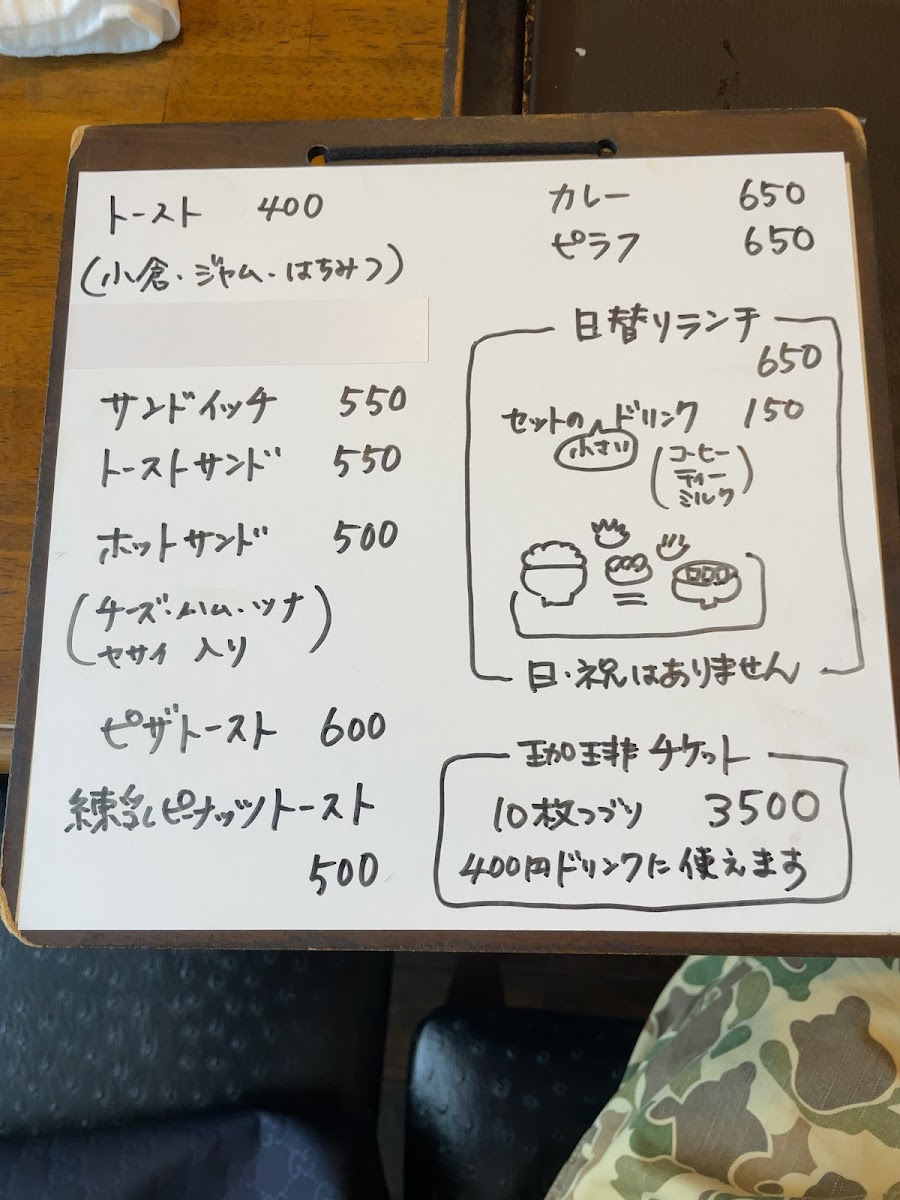 トースト 400
(小倉・ジャム・はちみつ)
サンドイッチ 550
トーストサンド 550
ホットサンド 500
(チーズ・ハム・ツナ
ヤサイ 入り)
ピザトースト 600
練乳ピーナッツトースト
500
カレー 650
ピラフ 650
日替りランチ
650
セットのドリンク 150
小さい
(コーヒー
ティー
ミルク)
日・祝はありません
珈琲チケット
10枚つづり 3500
400円ドリンクに使えます